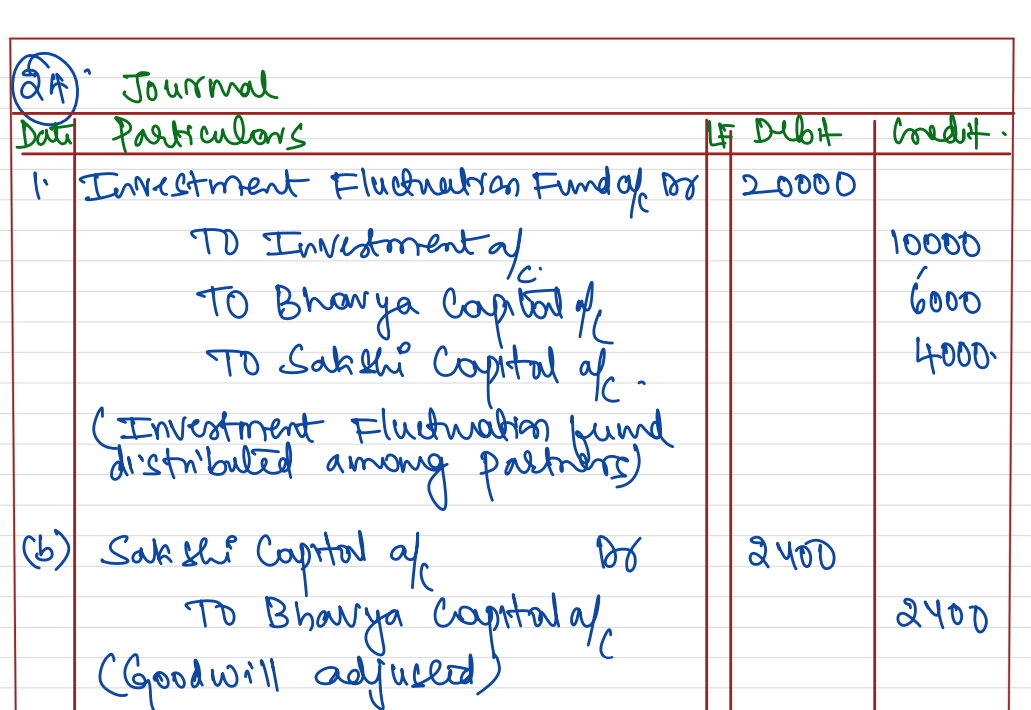 24. Journal
Date Particulars LF Debit Credit.
1. Investment Fluctuation Fund a/c Dr 20000
To Investment a/c. 10000
To Bhavya Capital a/c 6000
To Sakshi Capital a/c. 4000.
(Investment Fluctuation fund
distributed among partners)
(b) Sakshi Capital a/c Dr 2400
To Bhavya Capital a/c 2400
(Goodwill adjusted)